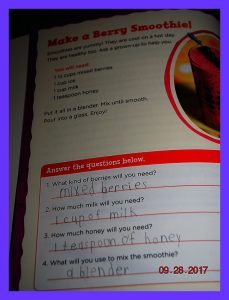 Make a Berry Smoothie!
Smoothies are yummy! They are cool on a hot day.
They are healthy too. Ask a grown-up to help you.
You will need:
1 ½ cups mixed berries
1 cup ice
1 cup milk
1 teaspoon honey
Put it all in a blender. Mix until smooth.
Pour into a glass. Enjoy!
Answer the questions below.
1. What kind of berries will you need?
mixed berries
2. How much milk will you need?
1 cup of milk
3. How much honey will you need?
1 teaspoon of honey
4. What will you use to mix the smoothie?
a blender
09-28-2017